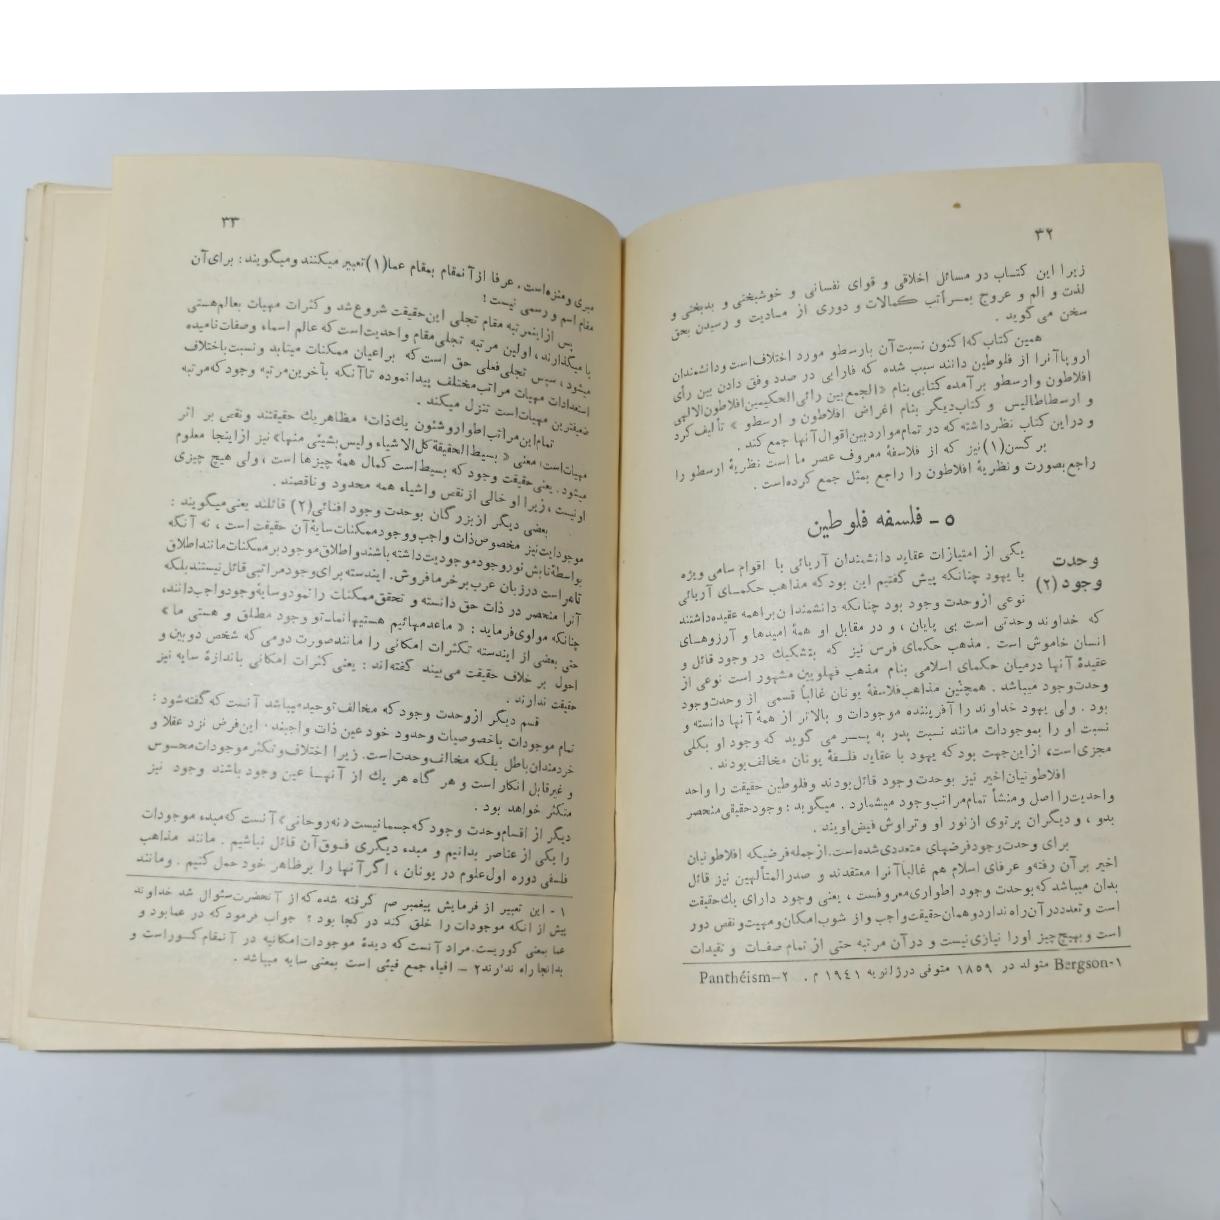 ۳۲
زیرا این کتاب در مسائل اخلاقی و قوای نفسانی و خوشبختی و بدبختی و
لذت و الم و عروج بمراتب کمالات و دوری از مادیت و رسیدن بحق
سخن می گوید .
همین کتاب که اکنون نسبت آن بارسطو مورد اختلاف است و دانشمندان
اروپا آنرا از فلوطین دانند سبب شده که فارابی در صدد وفق دادن بین رأی
افلاطون و ارسطو برآمده کتابی بنام «الجمع بین رائی الحکیمین افلاطون الالهی
و ارسطاطالیس و کتاب دیگر بنام اغراض افلاطون و ارسطو » تألیف کرد
و در این کتاب نظر داشته که در تمام موارد بین اقوال آنها جمع کند .
برگسن (۱) نیز که از فلاسفهٔ معروف عصر ما است نظریهٔ ارسطو را
راجع بصورت و نظریهٔ افلاطون را راجع بمثل جمع کرده است .
۵ - فلسفه فلوطین
وحدت
وجود (۲)
یکی از امتیازات عقاید دانشمندان آریائی با اقوام سامی ویژه
با یهود چنانکه پیش گفتیم این بود که مذاهب حکمای آریائی
نوعی از وحدت وجود بود چنانکه دانشمندان براهمه عقیده داشتند
که خداوند وحدتی است بی پایان ، و در مقابل او همهٔ امیدها و آرزوهای
انسان خاموش است . مذهب حکمای فرس نیز که بتشکیك در وجود قائل و
عقیدهٔ آنها درمیان حکمای اسلامی بنام مذهب فهلویین مشهور است نوعی از
وحدت وجود میباشد . همچنین مذاهب فلاسفهٔ یونان غالباً قسمی از وحدت وجود
بود . ولی یهود خداوند را آفریننده موجودات و بالاتر از همهٔ آنها دانسته و
نسبت او را بموجودات مانند نسبت پدر به پسر می گوید که وجود او بکلی
مجزی است؛ از این جهت بود که یهود با عقاید فلسفهٔ یونان مخالف بودند .
افلاطونیان اخیر نیز بوحدت وجود قائل بودند و فلوطین حقیقت را واحد
و احدیت را اصل و منشأ تمام مراتب وجود میشمارد . میگوید : وجود حقیقی منحصر
بدو ، و دیگران پرتوی از نور او و تراوش فیض اویند .
برای وحدت وجود فرضهای متعددی شده است. از جمله فرضیکه افلاطونیان
اخیر بر آن رفته و عرفای اسلام هم غالباً آنرا معتقدند و صدرالمتألهین نیز قائل
بدان میباشد که بوحدت وجود اطواری معروفست ، یعنی وجود دارای یك حقیقت
است و تعدد در آن راه ندارد و همان حقیقت واجب و از شوب امکان و مهیت و نقص دور
است و بهیچ چیز او را نیازی نیست و در آن مرتبه حتی از تمام صفات و تقیدات
۱-Bergson متولد در ۱۸۵۹ متوفی در ژانویه ۱۹۴۱ م . ۲—Panthéism
۳۳
مبری و منزه است . عرفا از آنمقام بمقام عما (۱) تعبیر میکنند و میگویند : برای آن
مقام اسم و رسمی نیست !
پس از اینمرتبه مقام تجلی این حقیقت شروع شد و کثرات مهیات بعالم هستی
پا میگذارند ، اولین مرتبه تجلی مقام واحدیت است که عالم اسماء و صفات نامیده
میشود ، سپس تجلی فعلی حق است که براعیان ممکنات میتابد و نسبت باختلاف
استعدادات مهیات مراتب مختلف پیدا نموده تا آنکه بآخرین مرتبه وجود که مرتبه
ضعیفترین مهیات است تنزل میکند .
تمام این مراتب اطوار و شئون یك ذات؛ مظاهر یك حقیقتند و نقص بر اثر
مهیات است؛ معنی « بسیط الحقیقة کل الاشیاء و لیس بشیئی منها» نیز از اینجا معلوم
میشود . یعنی حقیقت وجود که بسیط است کمال همهٔ چیزها است ، ولی هیچ چیزی
او نیست ، زیرا او خالی از نقص و اشیاء همه محدود و ناقصند .
بعضی دیگر از بزرگان بوحدت وجود افنائی (۲) قائلند یعنی میگویند :
موجودیت نیز مخصوص ذات واجب و وجود ممکنات سایهٔ آن حقیقت است ، نه آنکه
بواسطهٔ تابش نور وجود موجودیت داشته باشند و اطلاق موجود بر ممکنات مانند اطلاق
تامر است در زبان عرب بر خرما فروش. ایندسته برای وجود مراتبی قائل نیستند بلکه
آنرا منحصر در ذات حق دانسته و تحقق ممکنات را نمود و سایهٔ وجود واجب دانند،
چنانکه مولوی فرماید : « ما عدمهائیم هستیها نما ـ تو وجود مطلق و هستی ما »
حتی بعضی از ایندسته تکثرات امکانی را مانند صورت دومی که شخص دوبین و
احول بر خلاف حقیقت می بیند گفته اند : یعنی کثرات امکانی باندازهٔ سایه نیز
حقیقت ندارند .
قسم دیگر از وحدت وجود که مخالف توحید میباشد آنست که گفته شود :
تمام موجودات باخصوصیات و حدود خود عین ذات واجبند . این فرض نزد عقلا و
خردمندان باطل بلکه مخالف وحدت است. زیرا اختلاف و تکثر موجودات محسوس
و غیرقابل انکار است و هر گاه هر یك از آنها عین وجود باشند وجود نیز
متکثر خواهد بود .
دیگر از اقسام وحدت وجود که جسمانیست «نه روحانی» آنست که مبدء موجودات
را یکی از عناصر بدانیم و مبدء دیگری فوق آن قائل نباشیم . مانند مذاهب
فلسفی دوره اول علوم در یونان ، اگر آنها را بر ظاهر خود حمل کنیم . و مانند
۱ - این تعبیر از فرمایش پیغمبر ص گرفته شده که از آنحضرت سئوال شد خداوند
پیش از آنکه موجودات را خلق کند در کجا بود ؟ جواب فرمود که در عما بود و
عما بمعنی کوریست. مراد آنست که دیدهٔ موجودات امکانیه در آنمقام کور است و
بدانجا راه ندارند ۲ - افیاء جمع فیئی است بمعنی سایه میباشد .